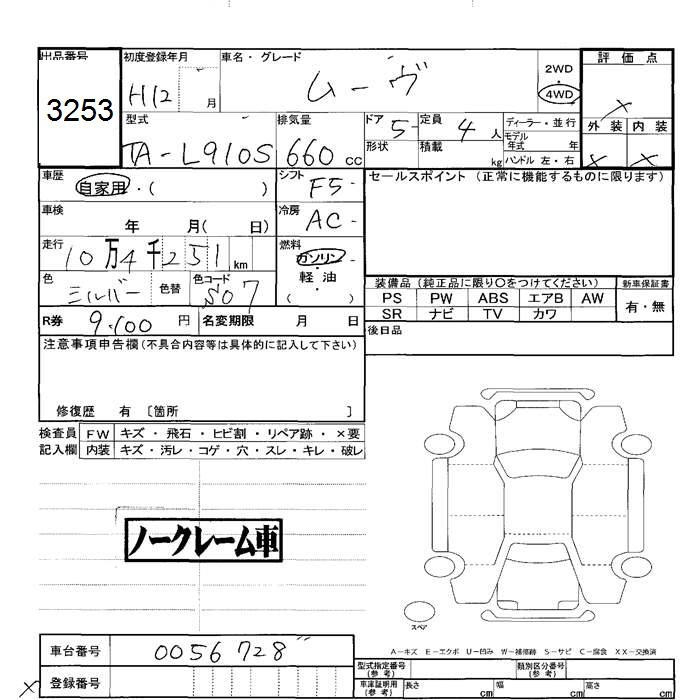 出品番号
3253
初度登録年月
H12 月
車名・グレード
ムーヴ
2WD
4WD
評価点
×
外装 内装
× ×
型式
TA-L910S
排気量
660 cc
ドア 5
形状
定員 4 人
積載 kg
ディーラー・並行
モデル年式 年
ハンドル 左・右
車歴
自家用・( )
シフト
F5-
セールスポイント (正常に機能するものに限ります)
車検
年 月( 日)
冷房
AC-
走行
10万4千251 km
燃料
ガソリン・軽油
( )
色
シルバー
色替
色コード
S07
装備品 (純正品に限り〇をつけてください)
新車保証書
PS PW ABS エアB AW
有・無
SR ナビ TV カワ
R券 9.100 円
名変期限 月 日
後日品
注意事項申告欄(不具合内容等は具体的に記入して下さい)
修復歴 有 〔箇所 〕
検査員記入欄
FW キズ・飛石・ヒビ割・リペア跡・×要
内装 キズ・汚レ・コゲ・穴・スレ・キレ・破レ
ノークレーム車
スペア
A-キズ E-エクボ U-凹み W-補修跡 S-サビ C-腐食 XX-交換済
車台番号
0056728"
登録番号
×
型式指定番号(参考)
類別区分番号(参考)
車庫証明用(参考)
長さ cm
幅 cm
高さ cm